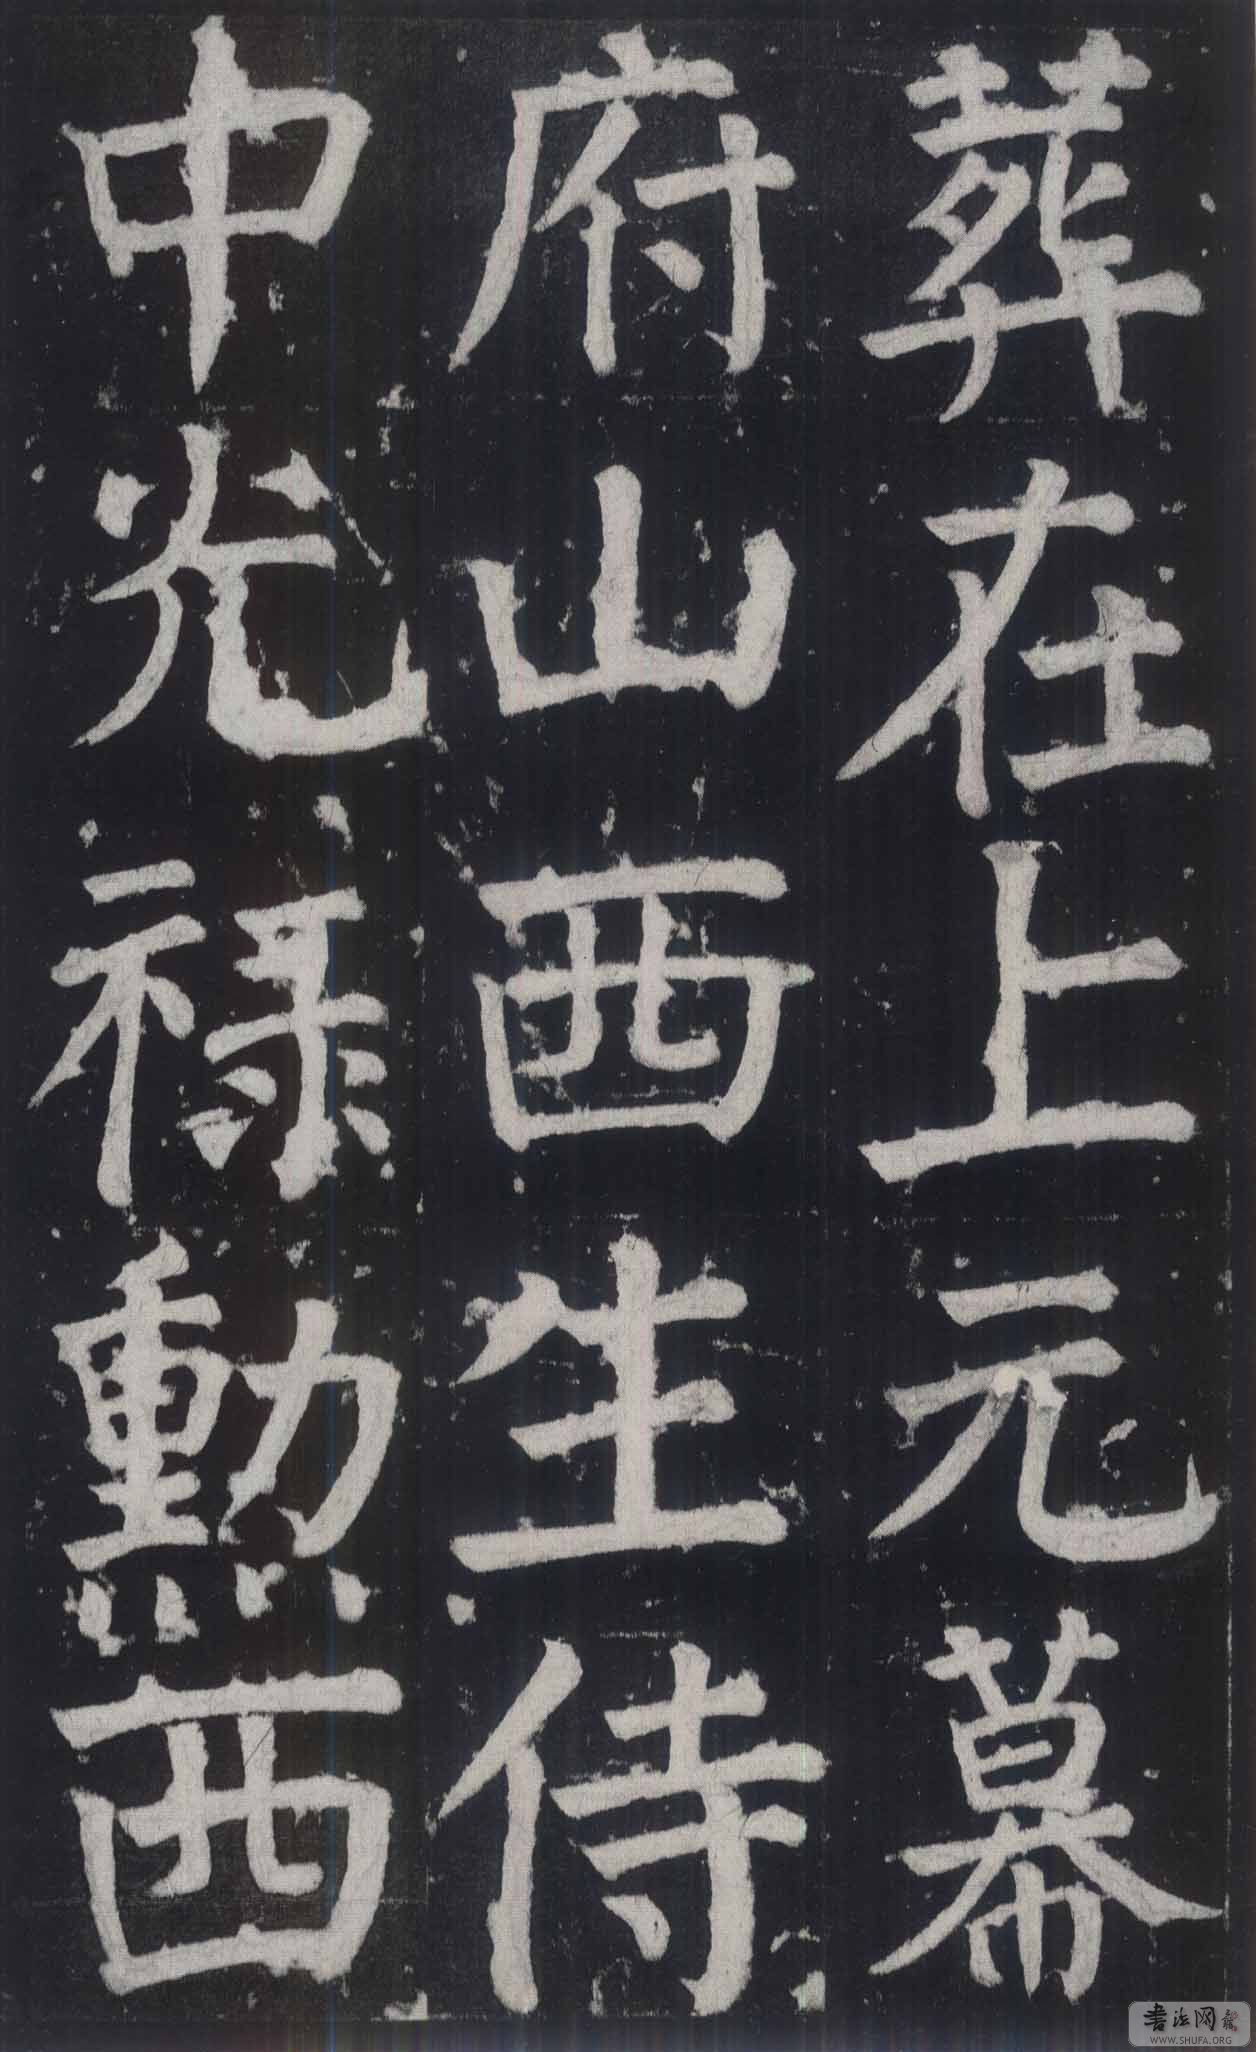 葬在上元幕
府山西生侍
中光禄勳西
書法网
WWW.SHUFA.ORG